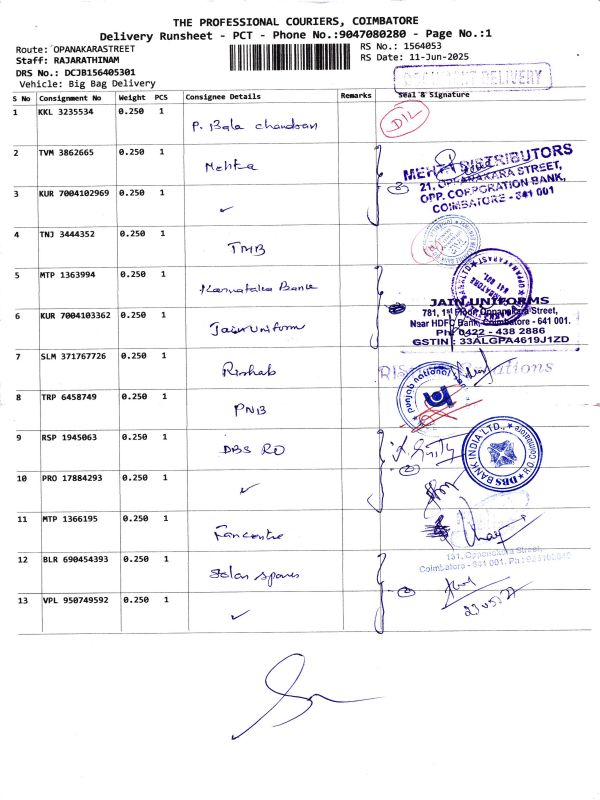 THE PROFESSIONAL COURIERS, COIMBATORE
Delivery Runsheet - PCT - Phone No.:9047080280 - Page No.:1
Route: OPANAKARASTREET
RS No.: 1564053
Staff: RAJARATHINAM
RS Date: 11-Jun-2025
DRS No.: DCJB156405301
Vehicle: Big Bag Delivery
DELIVERY
S No Consignment No Weight PCS Consignee Details Remarks Seal & Signature
1 KKL 3235534 0.250 1 P. Bala chandran D/L
2 TVM 3862665 0.250 1 Mehta
MEHTA DISTRIBUTORS
21, OPPANAKARA STREET,
OPP. CORPORATION BANK,
COIMBATORE - 641 001
3 KUR 7004102969 0.250 1 ✓
4 TNJ 3444352 0.250 1 TMB
5 MTP 1363994 0.250 1 Karnataka Bank
JAIN UNIFORMS
781, 1st Floor, Oppanakara Street,
Near HDFC Bank, Coimbatore - 641 001.
Ph: 0422 - 438 2886
GSTIN : 33ALGPA4619J1ZD
6 KUR 7004103362 0.250 1 Jain uniform
7 SLM 371767726 0.250 1 Rishab
8 TRP 6458749 0.250 1 PNB
punjab national
9 RSP 1945063 0.250 1 DBS RO
DBS BANK INDIA LTD., R.O. Coimbatore
10 PRO 17884293 0.250 1 ✓
11 MTP 1366195 0.250 1 Fancentre
131, Oppanakara Street,
Coimbatore - 641 001. Ph :
12 BLR 690454393 0.250 1 spares
13 VPL 950749592 0.250 1 ✓